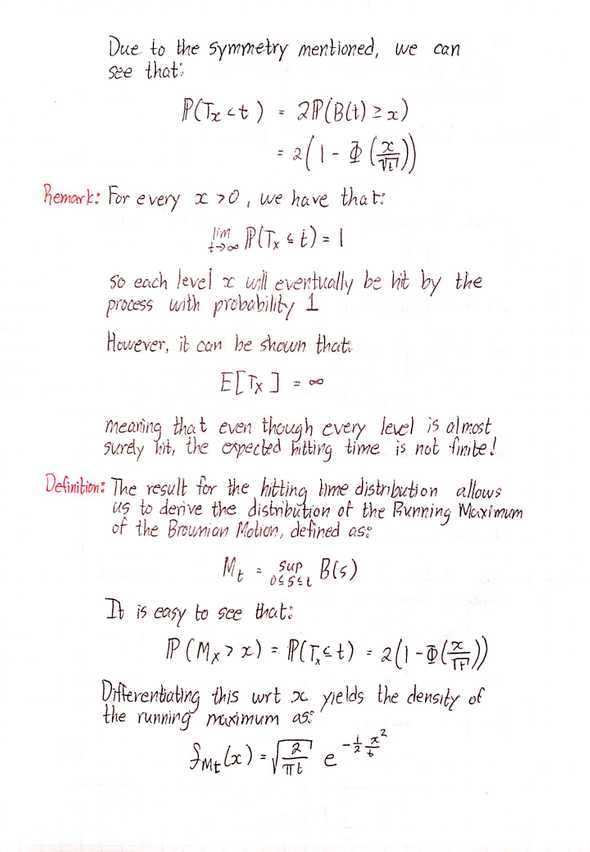 Due to the symmetry mentioned, we can
see that:
ℙ(Tx < t) = 2ℙ(B(t) ≥ x)
= 2(1 - Φ(x/√t))
Remark: For every x > 0, we have that:
lim t→∞ ℙ(Tx ≤ t) = 1
so each level x will eventually be hit by the
process with probability 1
However, it can be shown that:
E[Tx] = ∞
meaning that even though every level is almost
surely hit, the expected hitting time is not finite!
Definition: The result for the hitting time distribution allows
us to derive the distribution of the Running Maximum
of the Brownian Motion, defined as:
Mt = sup 0≤s≤t B(s)
It is easy to see that:
ℙ(Mx > x) = ℙ(Tx ≤ t) = 2(1 - Φ(x/√t))
Differentiating this wrt x yields the density of
the running maximum as:
fMt(x) = √(2/πt) e^(-1/2 x²/t)